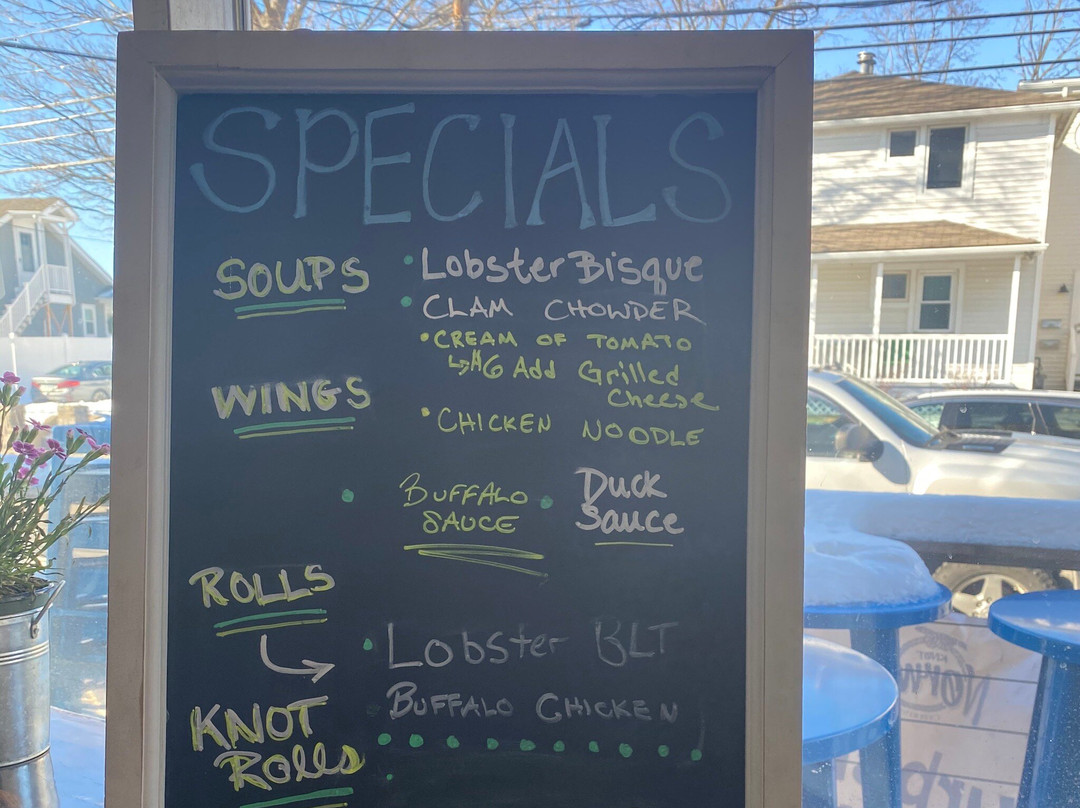 SPECIALS
SOUPS
• Lobster Bisque
• CLAM CHOWDER
• CREAM OF TOMATO
↳ $6 Add Grilled
Cheese
• CHICKEN NOODLE
WINGS
• BUFFALO
SAUCE
• Duck
Sauce
ROLLS
• Lobster BLT
BUFFALO CHICKEN
KNOT
Rolls
KNOT
NORM